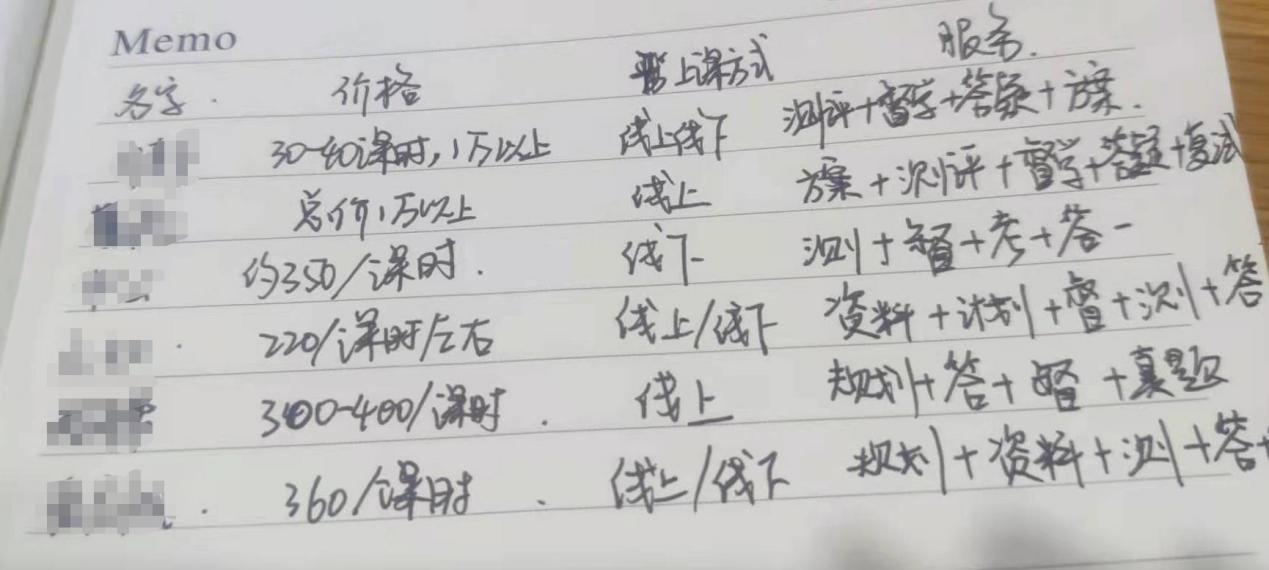 Memo
名字. 价格 上课方式 服务.
30-40课时,1万以上 线上线下 测评+督学+答疑+方案.
总价1万以上 线上 方案+测评+督学+答疑+复试
约350/课时. 线下 测+督+考+答-
220/课时左右 线上/线下 资料+计划+督+测+答
300-400/课时. 线上 规划+答+督+真题
360/课时. 线上/线下 规划+资料+测+答+